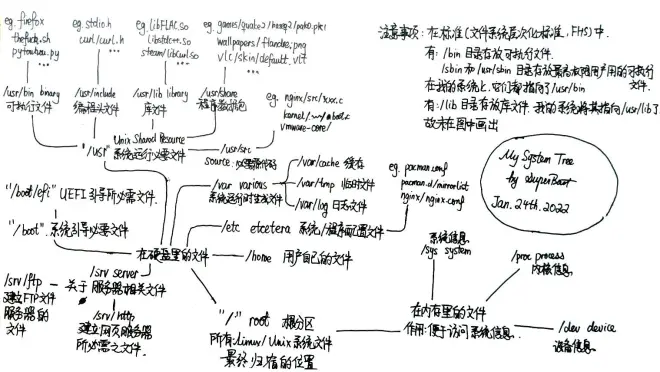 eg. firefox
thefuck.sh
pytouhou.py
eg. stdio.h
curl/curl.h
eg. libFLAC.so
libstdc++.so
steam/libcurl.so
eg. games/quake2/baseq2/pak0.pk1
wallpapers/flandre.png
vlc/skin/default.vlt
/usr/bin binary
可执行文件
/usr/include
编译头文件
/usr/lib library
库文件
/usr/share
程序数据包
eg. nginx/src/xxx.c
vmware-core/
"/usr" Unix Shared Resource
系统运行必要文件
/usr/src
source: 必要源代码
注意事项: 在标准(文件系统层次化标准, FHS)中,
有: /bin 目录存放可执行文件.
/sbin 和 /usr/sbin 目录存放最高权限用户用的可执行文件.
在我的系统上, 它们都指向 /usr/bin
有: /lib 目录存放库文件. 我的系统将其指向 /usr/lib 了
故未在图中画出
My System Tree
by SuperBart
Jan. 24th. 2022
/var various
系统运行时变动文件
/var/cache 缓存
/var/tmp 临时文件
/var/log 日志文件
eg. pacman.conf
pacman.d/mirrorlist
nginx/nginx.conf
"/boot/efi" UEFI 引导所必需文件.
"/boot" 系统引导必要文件
/etc etcetera 系统/程序配置文件
在硬盘里的文件
/home 用户自己的文件
/srv server
关于服务器相关文件
/srv/ftp
建立FTP文件
服务器的
文件
/srv/http
建立网页服务器
所必需之文件.
"/" root 根分区
所有Linux/Unix系统文件
最终归宿的位置
系统信息
/sys system
/proc process
内核信息
在内存里的文件
作用: 便于访问系统信息.
/dev device
设备信息